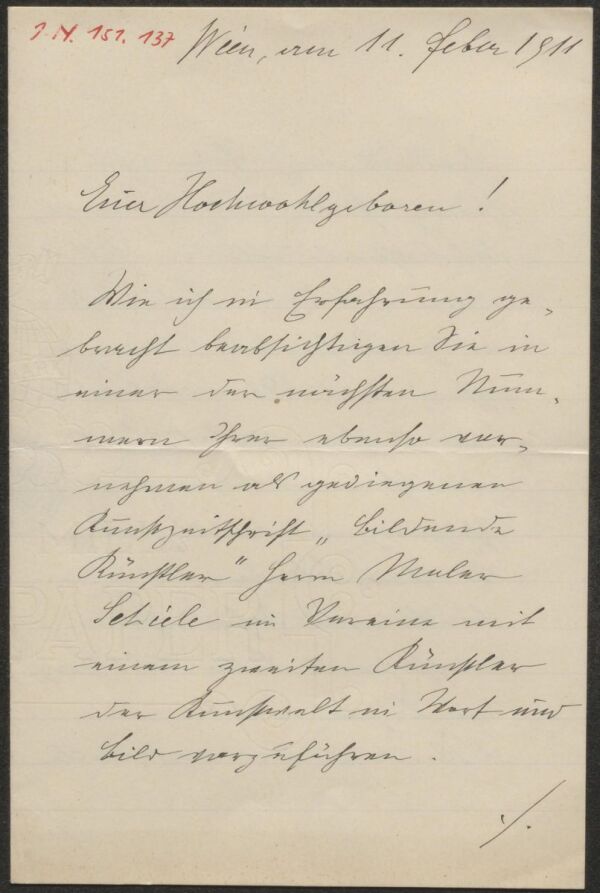 J. N. 151. 137
Wien, am 11. Feber 1911
Euer Hochwohlgeboren!
Wie ich in Erfahrung ge-
bracht beabsichtigen Sie in
einer der nächsten Num-
mern Ihrer ebenso vor-
nehmen als gediegenen
Kunstzeitschrift „bildende
Künstler" Herrn Maler
Schiele im Vereine mit
einem zweiten Künstler
der Kunstwelt in Wort und
Bild vorzuführen.
./.